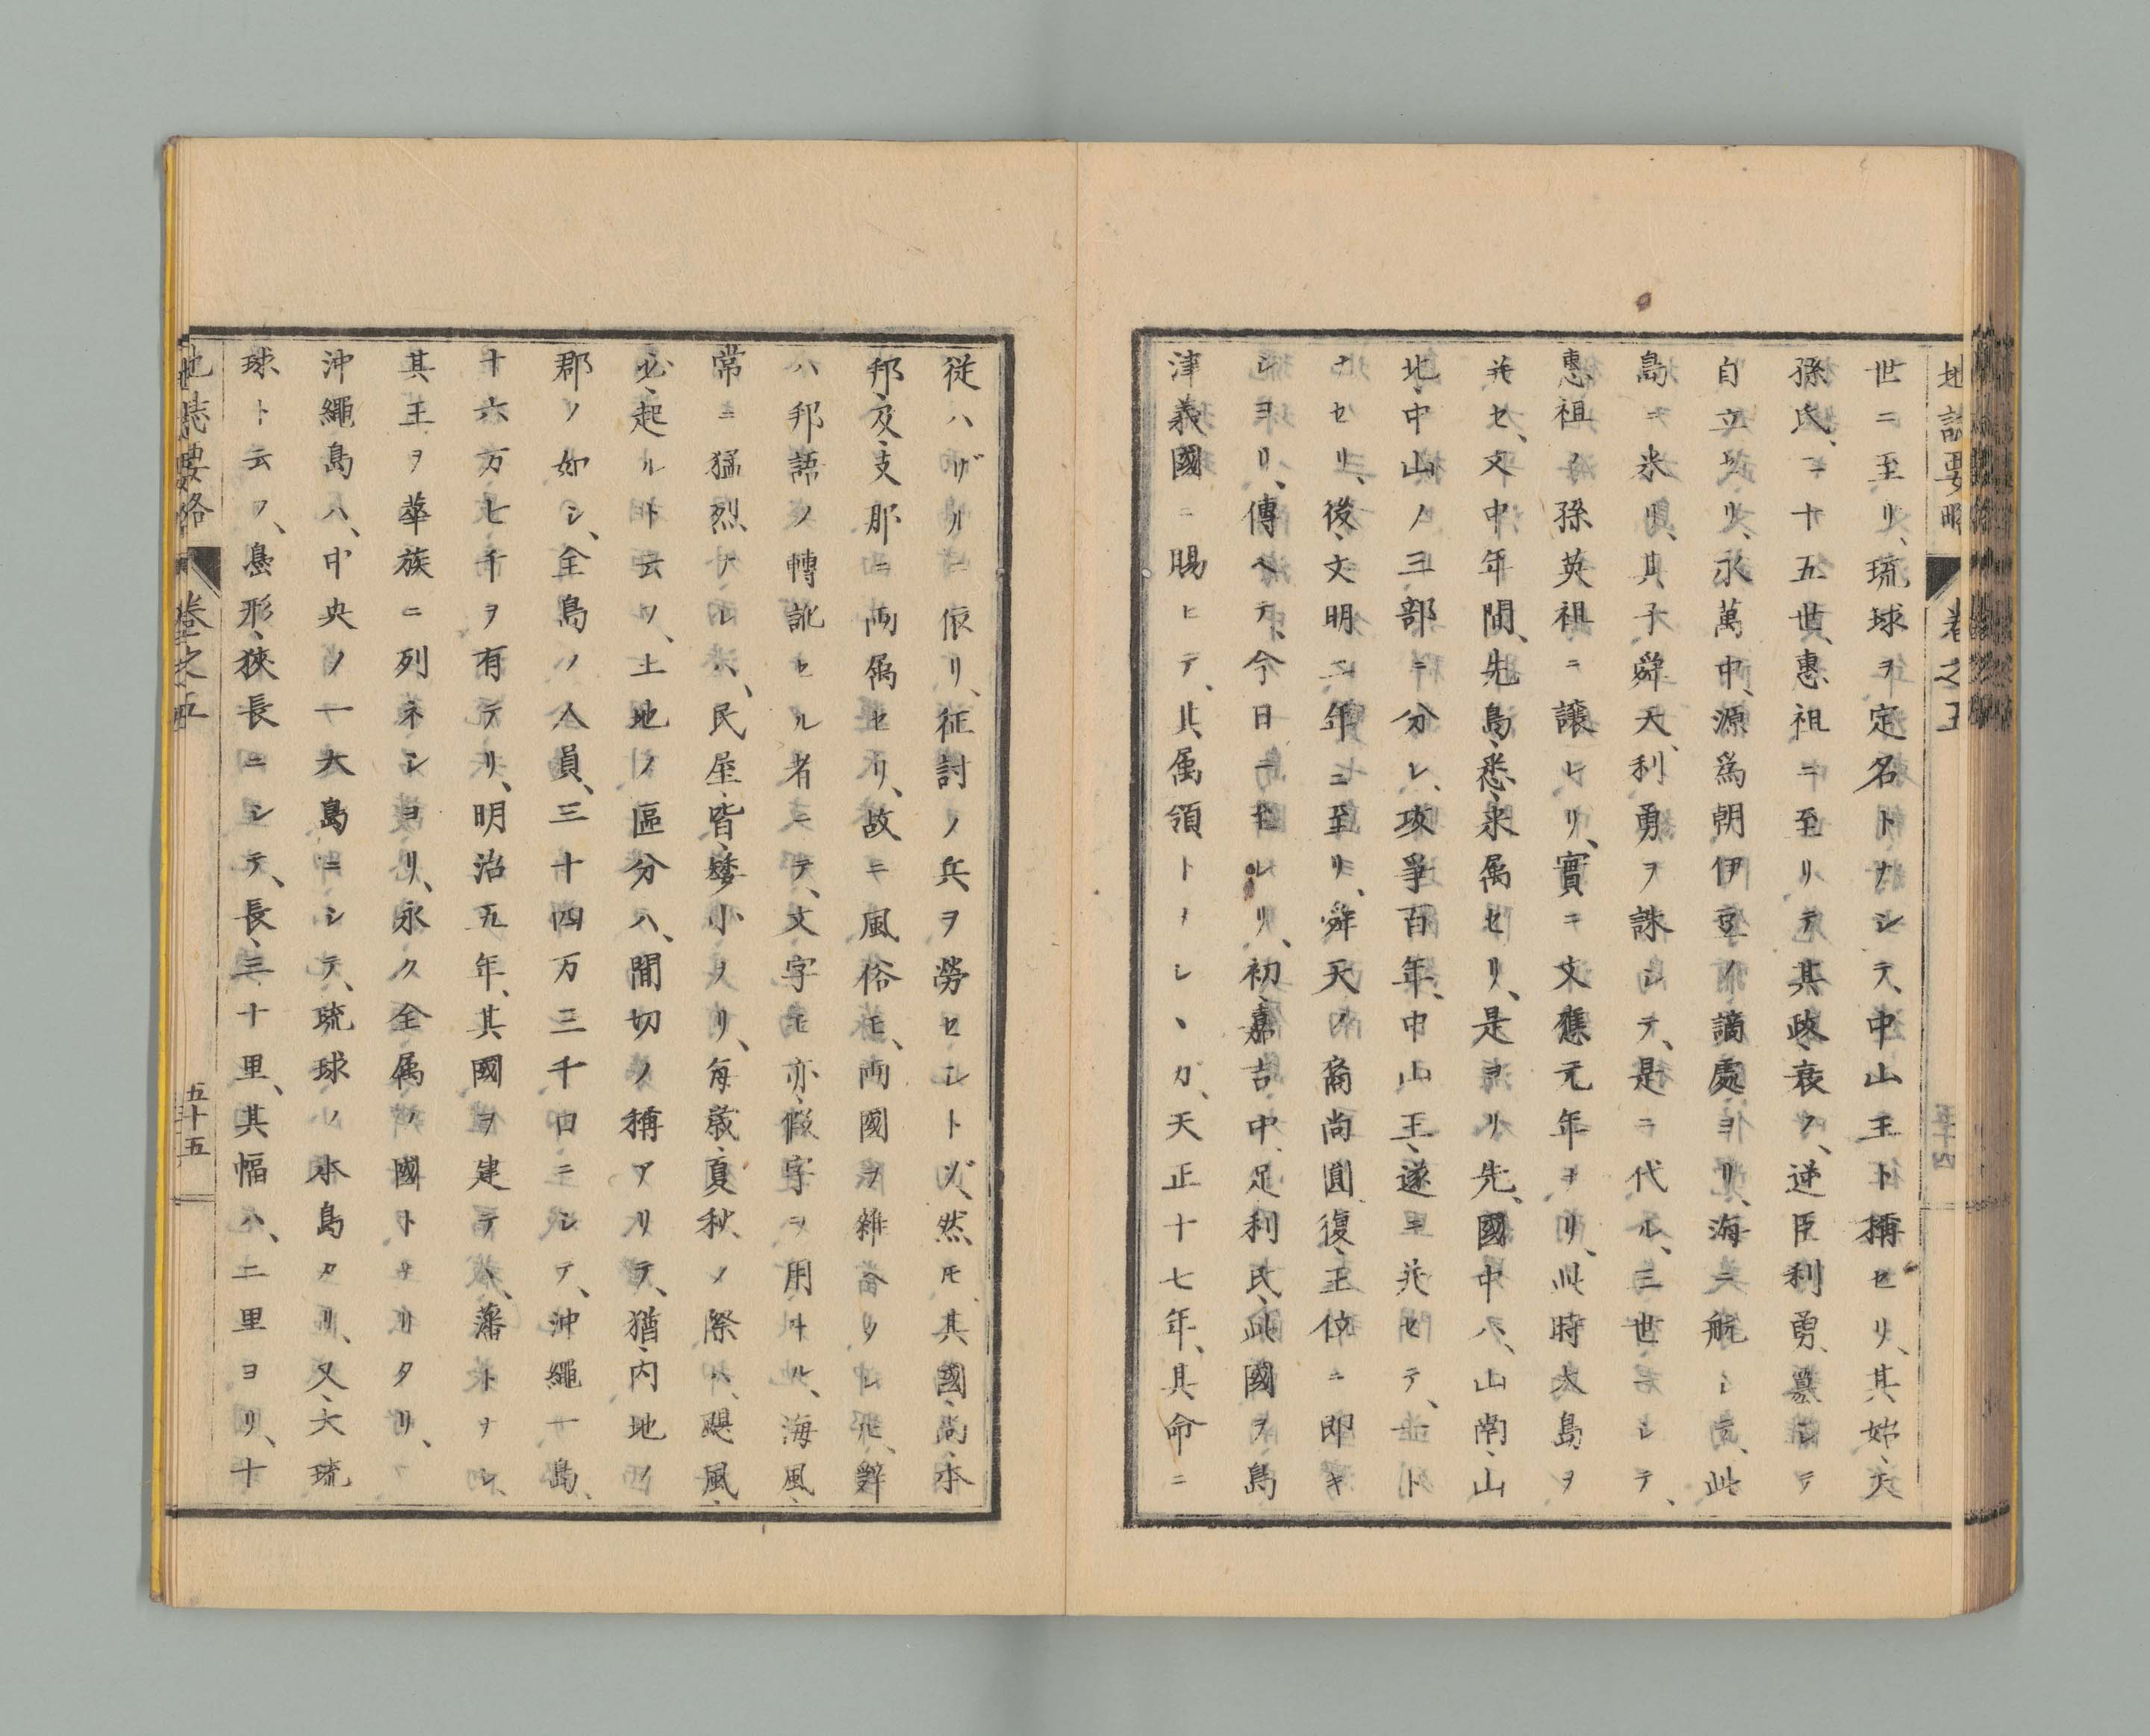 地誌要略 卷之五
世ニ至リ、琉球ヲ定名トナシテ、中山王ト稱セリ、其始、天
孫氏、二十五世、惠祖ニ至リテ、其政、衰ヘ、逆臣利勇、簒シテ
自立セリ、永萬中、源爲朝、伊豆ノ謫處ヨリ、海ニ航シテ、此
島ニ來リ、其子舜天、利勇ヲ誅シテ、是ニ代ル、三世ニシテ、
惠祖ノ孫英祖ニ讓レリ、實ニ文應元年ナリ、此時大島ヲ
并セ、文中年間、先島、悉、來属セリ、是ヨリ先、國中ハ、山南、山
北、中山ノ三部ニ分レ、攻爭百年、中山王、遂ニ并セテ、一ト
ナセリ、後、文明二年ニ至リ、舜天ノ裔尚圓、復、王位ニ即キ
シヨリ、傳ヘテ、今日ニ至レリ、初、嘉吉中、足利氏、此國ヲ、島
津義國ニ賜ヒテ、其属領トナシヽガ、天正十七年、其命ニ
從ハザルニ依リ、征討ノ兵ヲ勞セシトゾ、然レ𪜈、其國、尚、本
邦、及、支那ニ両属セリ、故ニ風俗モ、両國ヲ雜ヘタレ𪜈、辭
ハ邦語ノ轉訛セル者ニテ、文字モ亦、假字ヲ用ヰル、海風、
常ニ猛烈ナレハ、民屋、皆、矮小ナリ、毎歳、夏秋ノ際ハ、颶風、
必、起ルト云フ、土地ノ區分ハ、間切ノ稱アリテ、猶、内地ノ
郡ノ如シ、全島ノ人員、三十四万三千口ニシテ、沖繩一島、
十六万七千ヲ有テリ、明治五年、其國ヲ建テヽ、藩トナシ、
其王ヲ華族ニ列ネシヨリ、永ク全属ノ國トナリタリ、
沖繩島ハ、中央ノ一大島ニシテ、琉球ノ本島タリ、又、大琉
球ト云フ、島形、狹長ニシテ、長、三十里、其幅ハ、二里ヨリ、十
地誌要略 卷之五 五十五